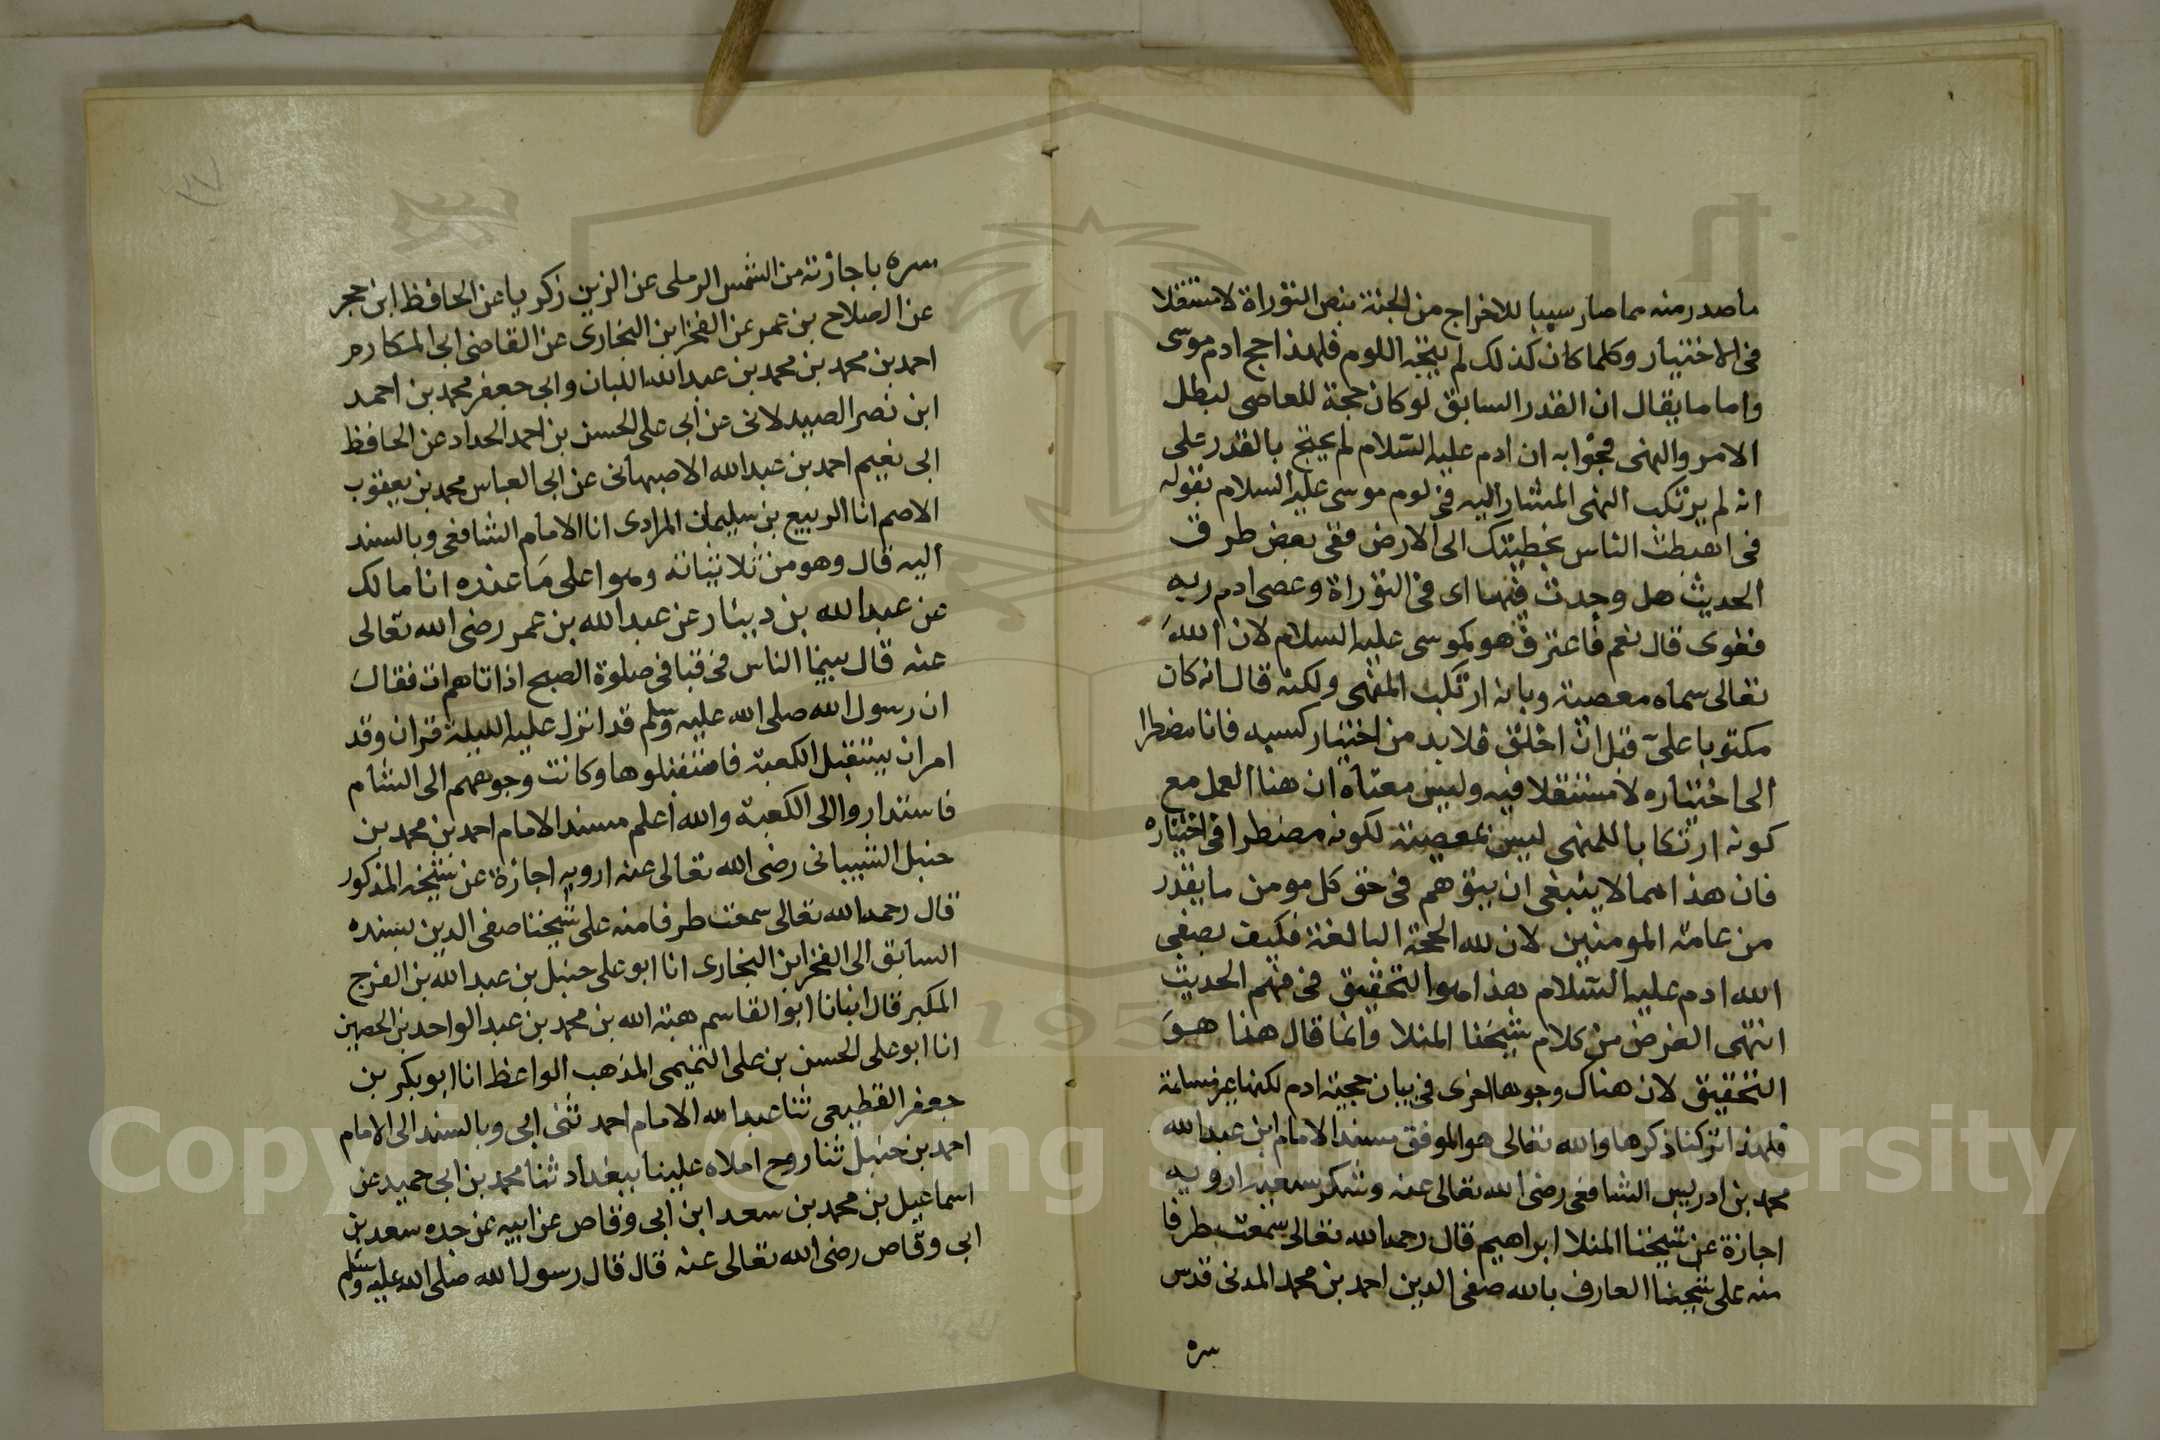 ما صدر منه مما صار سببا للاخراج من الجنة بنص التوراة لا مستقلا
في الاختيار وكلما كان كذلك لم يتجه اللوم فلهذا حج ادم موسى
واما ما يقال ان القدر السابق لو كان حجة للعاصي لبطل
الامر والنهي فجوابه ان ادم عليه السلام لم يحتج بالقدر على
انه لم يرتكب النهي المشار اليه في لوم موسى عليه السلام بقوله
في اهبطت الناس بخطيئتك الى الارض ففي بعض طرق
الحديث هل وجدت فيها اي في التوراة وعصى ادم ربه
فغوى قال نعم فاعترف هو كموسى عليه السلام لان الله
تعالى سماه معصية وبانه ارتكب المنهي ولكنه قال انه كان
مكتوبا علىّ قبل ان اخلق فلا بد من اختيار كسبه فانا مضطرا
الى اختياره لا مستقلا فيه وليس معناه ان هنا العمل مع
كونه ارتكابا للمنهي ليس بمعصية لكونه مضطرا في اختياره
فان هذا مما لا ينبغي ان يتوهم في حق كل مومن ما يقدر
من عامة المومنين لان لله الحجة البالغة فكيف بصفي
الله ادم عليه السلام هذا هو التحقيق في فهم الحديث
انتهى الغرض من كلام شيخنا المنلا وانما قال هذا هو
التحقيق لان هناك وجوها اخرى في بيان حجية ادم لكنها غير سالمة
فلهذا تركنا ذكرها والله تعالى هو الموفق مسند الامام ابن عبد الله
محمد بن ادريس الشافعي رضي الله تعالى عنه وشكر سعيه ارويه
اجازة عن شيخنا المنلا ابراهيم قال رحمه الله تعالى سمعت طرفا
منه على شيخنا العارف بالله صفي الدين احمد بن محمد المدني قدس
سره
سره باجازته من الشمس الرملي عن الزين زكريا عن الحافظ ابن حجر
عن الصلاح بن عمر عن الفخر ابن البخاري عن القاضي ابي المكارم
احمد بن محمد بن محمد بن عبد الله اللبان وابي جعفر محمد بن احمد
ابن نصر الصيدلاني عن ابي علي الحسن بن احمد الحداد عن الحافظ
ابي نعيم احمد بن عبد الله الاصبهاني عن ابي العباس محمد بن يعقوب
الاصم انا الربيع بن سليمان المرادي انا الامام الشافعي وبالسند
اليه قال وهو من ثلاثياته وهو اعلى ما عنده انا مالك
عن عبد الله بن دينار عن عبد الله بن عمر رضي الله تعالى
عنه قال بينما الناس في قبا في صلوة الصبح اذ اتاهم ات فقال
ان رسول الله صلى الله عليه وسلم قد انزل عليه الليلة قران وقد
امر ان يستقبل الكعبة فاستقبلوها وكانت وجوههم الى الشام
فاستداروا الى الكعبة والله اعلم مسند الامام احمد بن محمد بن
حنبل الشيباني رضي الله تعالى عنه ارويه اجازة عن شيخنا المذكور
قال رحمه الله تعالى سمعت طرفا منه على شيخنا صفي الدين بسنده
السابق الى الفخر ابن البخاري انا ابو علي حنبل بن عبد الله بن الفرج
المكبر قال انبانا ابو القاسم هبة الله بن محمد بن عبد الواحد بن الحصين
انا ابو علي الحسن بن علي التميمي المذهب الواعظ انا ابو بكر بن
جعفر القطيعي ثنا عبد الله الامام احمد ثنى ابي وبالسند الى الامام
احمد بن حنبل ثنا روح املاه علينا ببغداد ثنا محمد بن ابي حميد عن
اسماعيل بن محمد بن سعد ابن ابي وقاص عن ابيه عن جده سعد بن
ابي وقاص رضي الله تعالى عنه قال قال رسول الله صلى الله عليه وسلم
Copyright © King Saud University